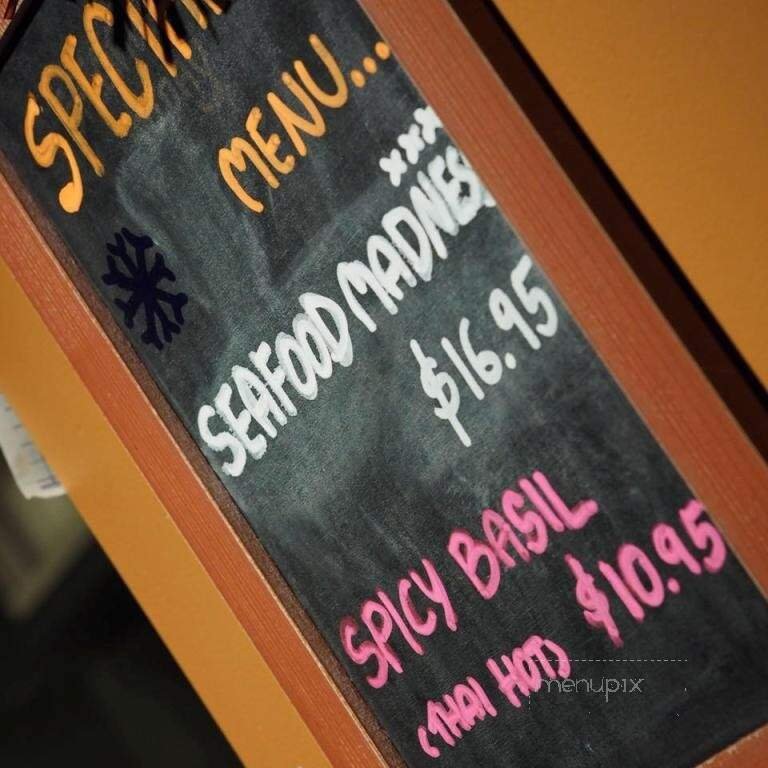 MENU...
xxx
SEAFOOD MADNESS
$16.95
SPICY BASIL
$10.95
(THAI HOT)
menupix